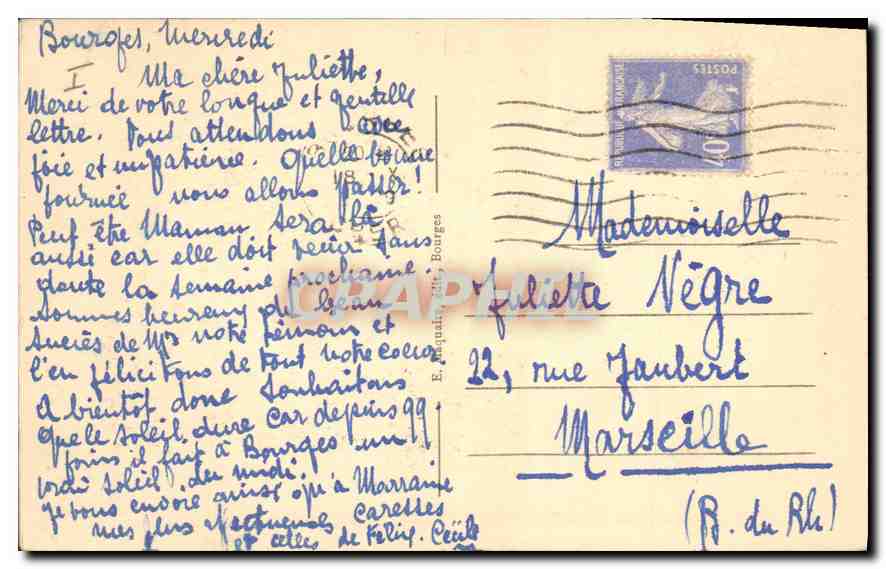 Bourges, Mercredi
I
Ma chère Juliette,
Merci de votre longue et gentille
lettre. Vous attendons avec
joie et impatience. Quelle bonne
journée nous allons passer!
Peut être Maman sera là
aussi car elle doit venir sans
doute la semaine prochaine.
Sommes heureux du beau
succès de Mr notre témoin et
l'en félicitons de tout notre coeur
A bientôt donc souhaitons
que le soleil dure car depuis qq.
jours il fait à Bourges un
vrai soleil du midi.
Je vous envoie ainsi qu'à Marraine
mes plus affectueuses caresses
et celles de Félix. Cécile
E. Maquaire, édit., Bourges
CPAPHIL
REPUBLIQUE FRANÇAISE
POSTES
40c
Mademoiselle
Juliette Nègre
22, rue Jaubert
Marseille
(B. du Rh)